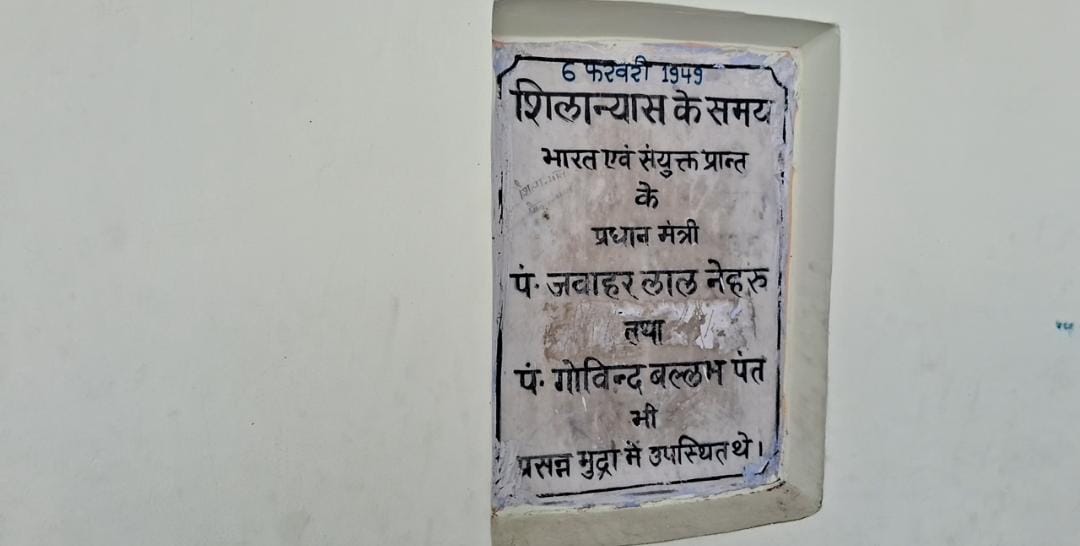 6 फरवरी 1949
शिलान्यास के समय
भारत एवं संयुक्त प्रान्त
के
प्रधान मंत्री
पं. जवाहर लाल नेहरु
तथा
पं. गोविन्द बल्लभ पंत
भी
प्रसन्न मुद्रा में उपस्थित थे।